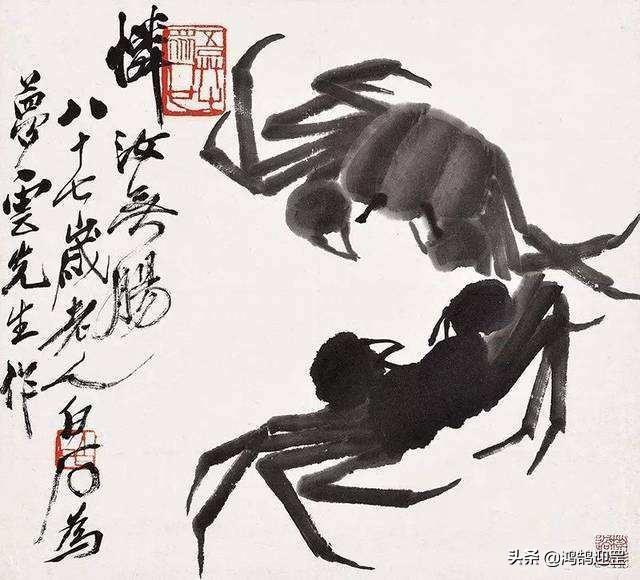 憐汝無腸
八十七歲老人白石為
夢雲先生作
头条 @鸿鹄迎罡